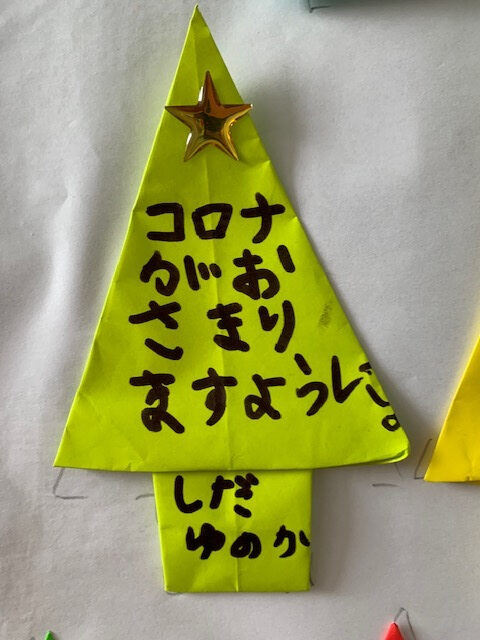 コロナ
がお
さまり
ますように。
しだ
ゆのか